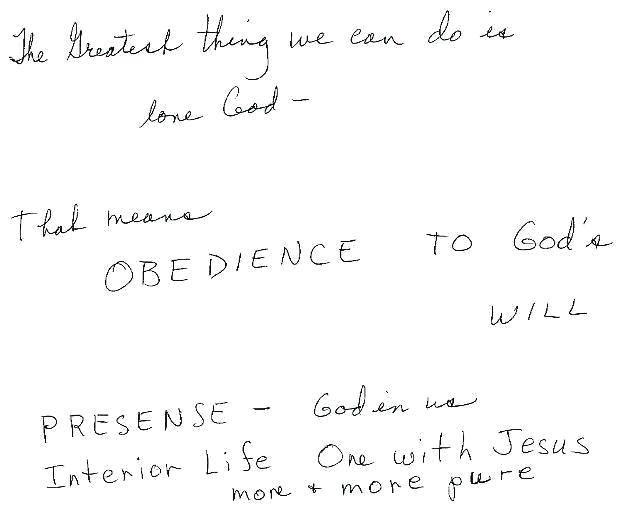 The Greatest thing we can do is
love God -
That means
OBEDIENCE TO God's
WILL
PRESENSE - God in us
Interior Life One with Jesus
more + more pure